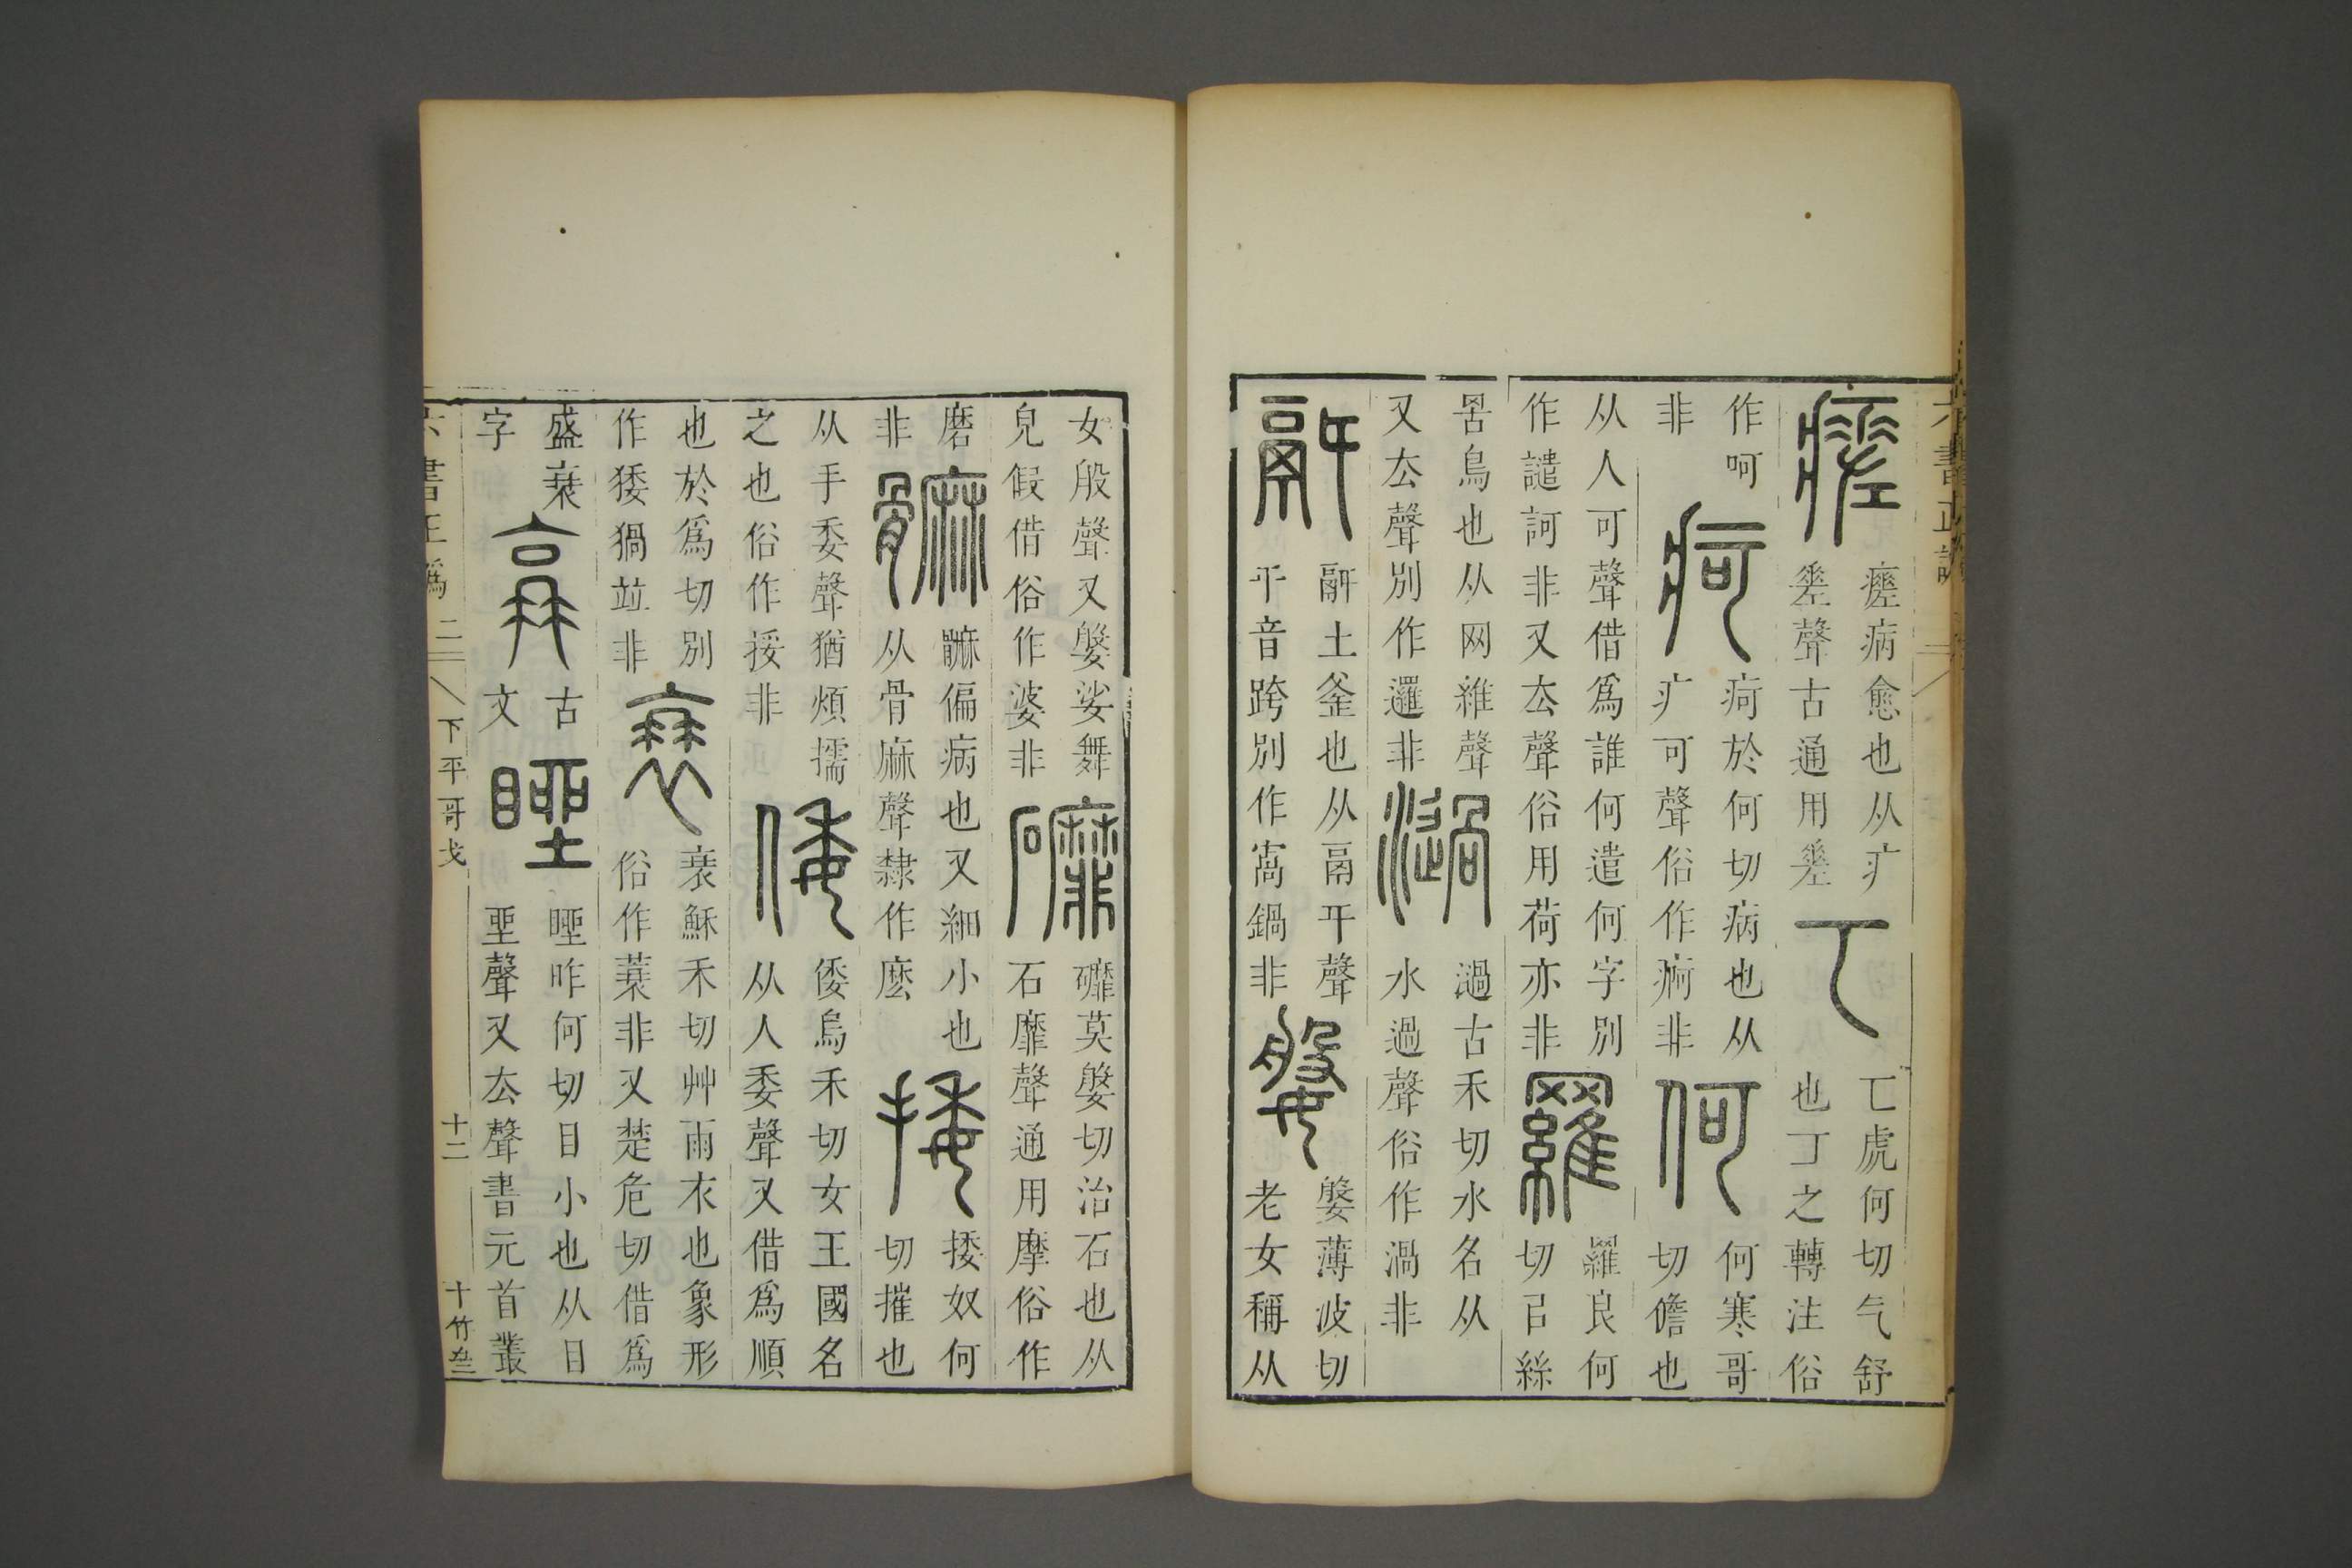 瘥
瘥病愈也从疒
𢀩聲古通用𢀩
虎何切气舒
也丁之轉注俗
作呵
非
疴
疴於何切病也从
疒可聲俗作痾非
何
何寒哥
切儋也
从人可聲借爲誰何遣何字別
作譴訶非又去聲俗用荷亦非
羅
羅良何
切㠯絲
罟鳥也从网維聲
又去聲別作邏非
濄
濄古禾切水名从
水過聲俗作渦非
土釜也从鬲干聲
干音跨別作窩鍋非
媻
媻薄波切
老女稱从
女般聲又媻娑舞
皃假借俗作婆非
䃺
䃺莫媻切治石也从
石靡聲通用摩俗作
磨
非
䯢
䯢偏病也又細小也
从骨麻聲隸作麼
捼
捼奴何
切摧也
从手委聲猶煩擩
之也俗作挼非
倭
倭烏禾切女王國名
从人委聲又借爲順
也於爲切別
作猣猧竝非
衰
衰穌禾切艸雨衣也象形
俗作蓑非又楚危切借爲
盛衰
字
古
文
昨何切目小也从目
坙聲又去聲書元首叢
六書正譌 二 下平哥戈 十二 十竹齋
六書正譌 二